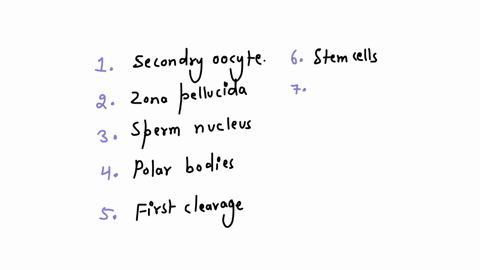 1. Secondry oocyte.
2. Zona pellucida
3. Sperm nucleus
4. Polar bodies
5. First clearage
6. Stem cells
7.